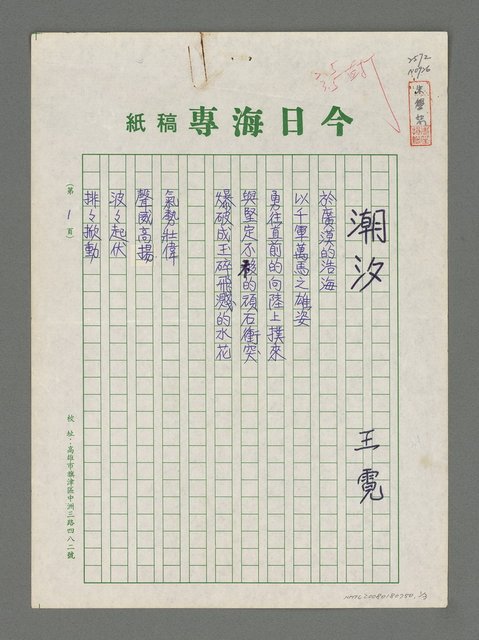 2572
今日海專稿紙
潮汐
王霓
於廣漠的浩海
以千軍萬馬之雄姿
勇往直前的向陸上撲來
與堅定不移的頑石衝突
爆破成玉碎飛濺的水花
氣勢壯偉
聲威高揚
波々起伏
排々掀動
(第1頁)
校址：高雄市旗津區中洲三路四八二號
NMTL20080180750. 1/3